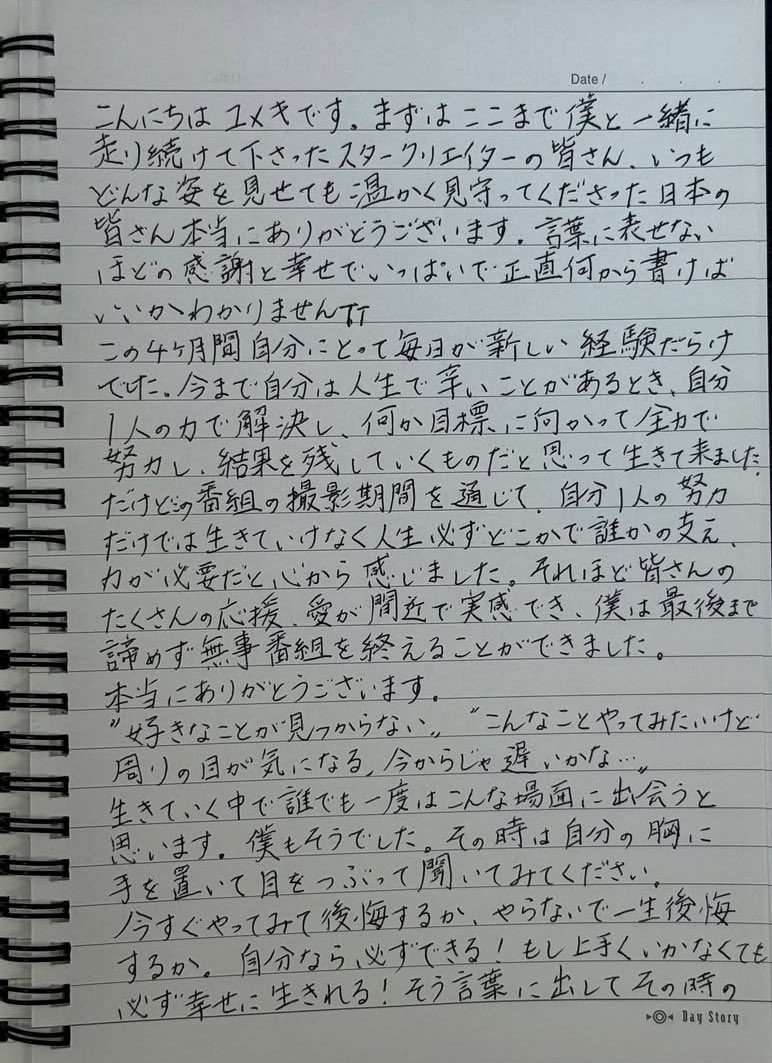 Date /
こんにちは ユメキです。まずは ここまで 僕と 一緒に
走り続けて下さったスタークリエイターの皆さん、いつも
どんな姿を見せても温かく見守ってくださった日本の
皆さん本当にありがとうございます。言葉に表せない
ほどの感謝と幸せでいっぱいで正直何から書けば
いいかわかりませんTT
この4ヶ月間自分にとって毎日が新しい経験だらけ
でした。今まで自分は人生で辛いことがあるとき、自分
1人の力で解決し、何か目標に向かって全力で
努力し、結果を残していくものだと思って生きて来ました。
だけどこの番組の撮影期間を通じて、自分1人の努力
だけでは生きていけなく人生必ずどこかで誰かの支え、
力が必要だと心から感じました。それほど皆さんの
たくさんの応援、愛が間近で実感でき、僕は最後まで
諦めず無事番組を終えることができました。
本当にありがとうございます。
"好きなことが見つからない„ "こんなことやってみたいけど
周りの目が気になる,今からじゃ遅いかな…„
生きていく中で誰でも一度はこんな場面に出会うと
思います。僕もそうでした。その時は自分の胸に
手を置いて目をつぶって聞いてみてください。
今すぐやってみて後悔するか、やらないで一生後悔
するか。自分なら必ずできる!もし上手くいかなくても
必ず幸せに生きれる!そう言葉に出してその時の
Day Story